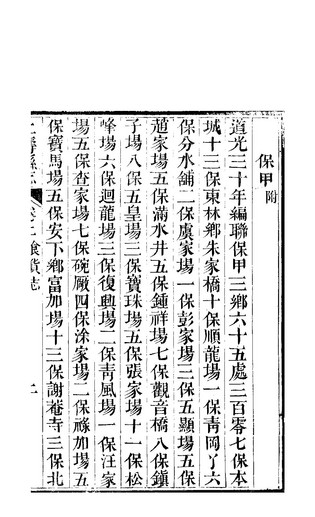 保甲附
道光三十年編聯保甲三鄉六十五處三百零七保本
城十三保東林鄉朱家橋十保順龍場一保靑岡丫六
保分水舖二保虞家場一保彭家場三保五顯場五保
趙家場五保滿水井五保鍾祥場七保觀音橋八保鎭
子場八保五皇場三保寶珠場五保張家場十一保松
峰場六保迴龍場三保復興場二保靑風場一保汪家
場五保查家場七保碗厰四保涂家場二保祿加場五
保寶馬場五保安下鄉富加場十三保謝菴寺三保北
仁壽縣志 卷二食貨志